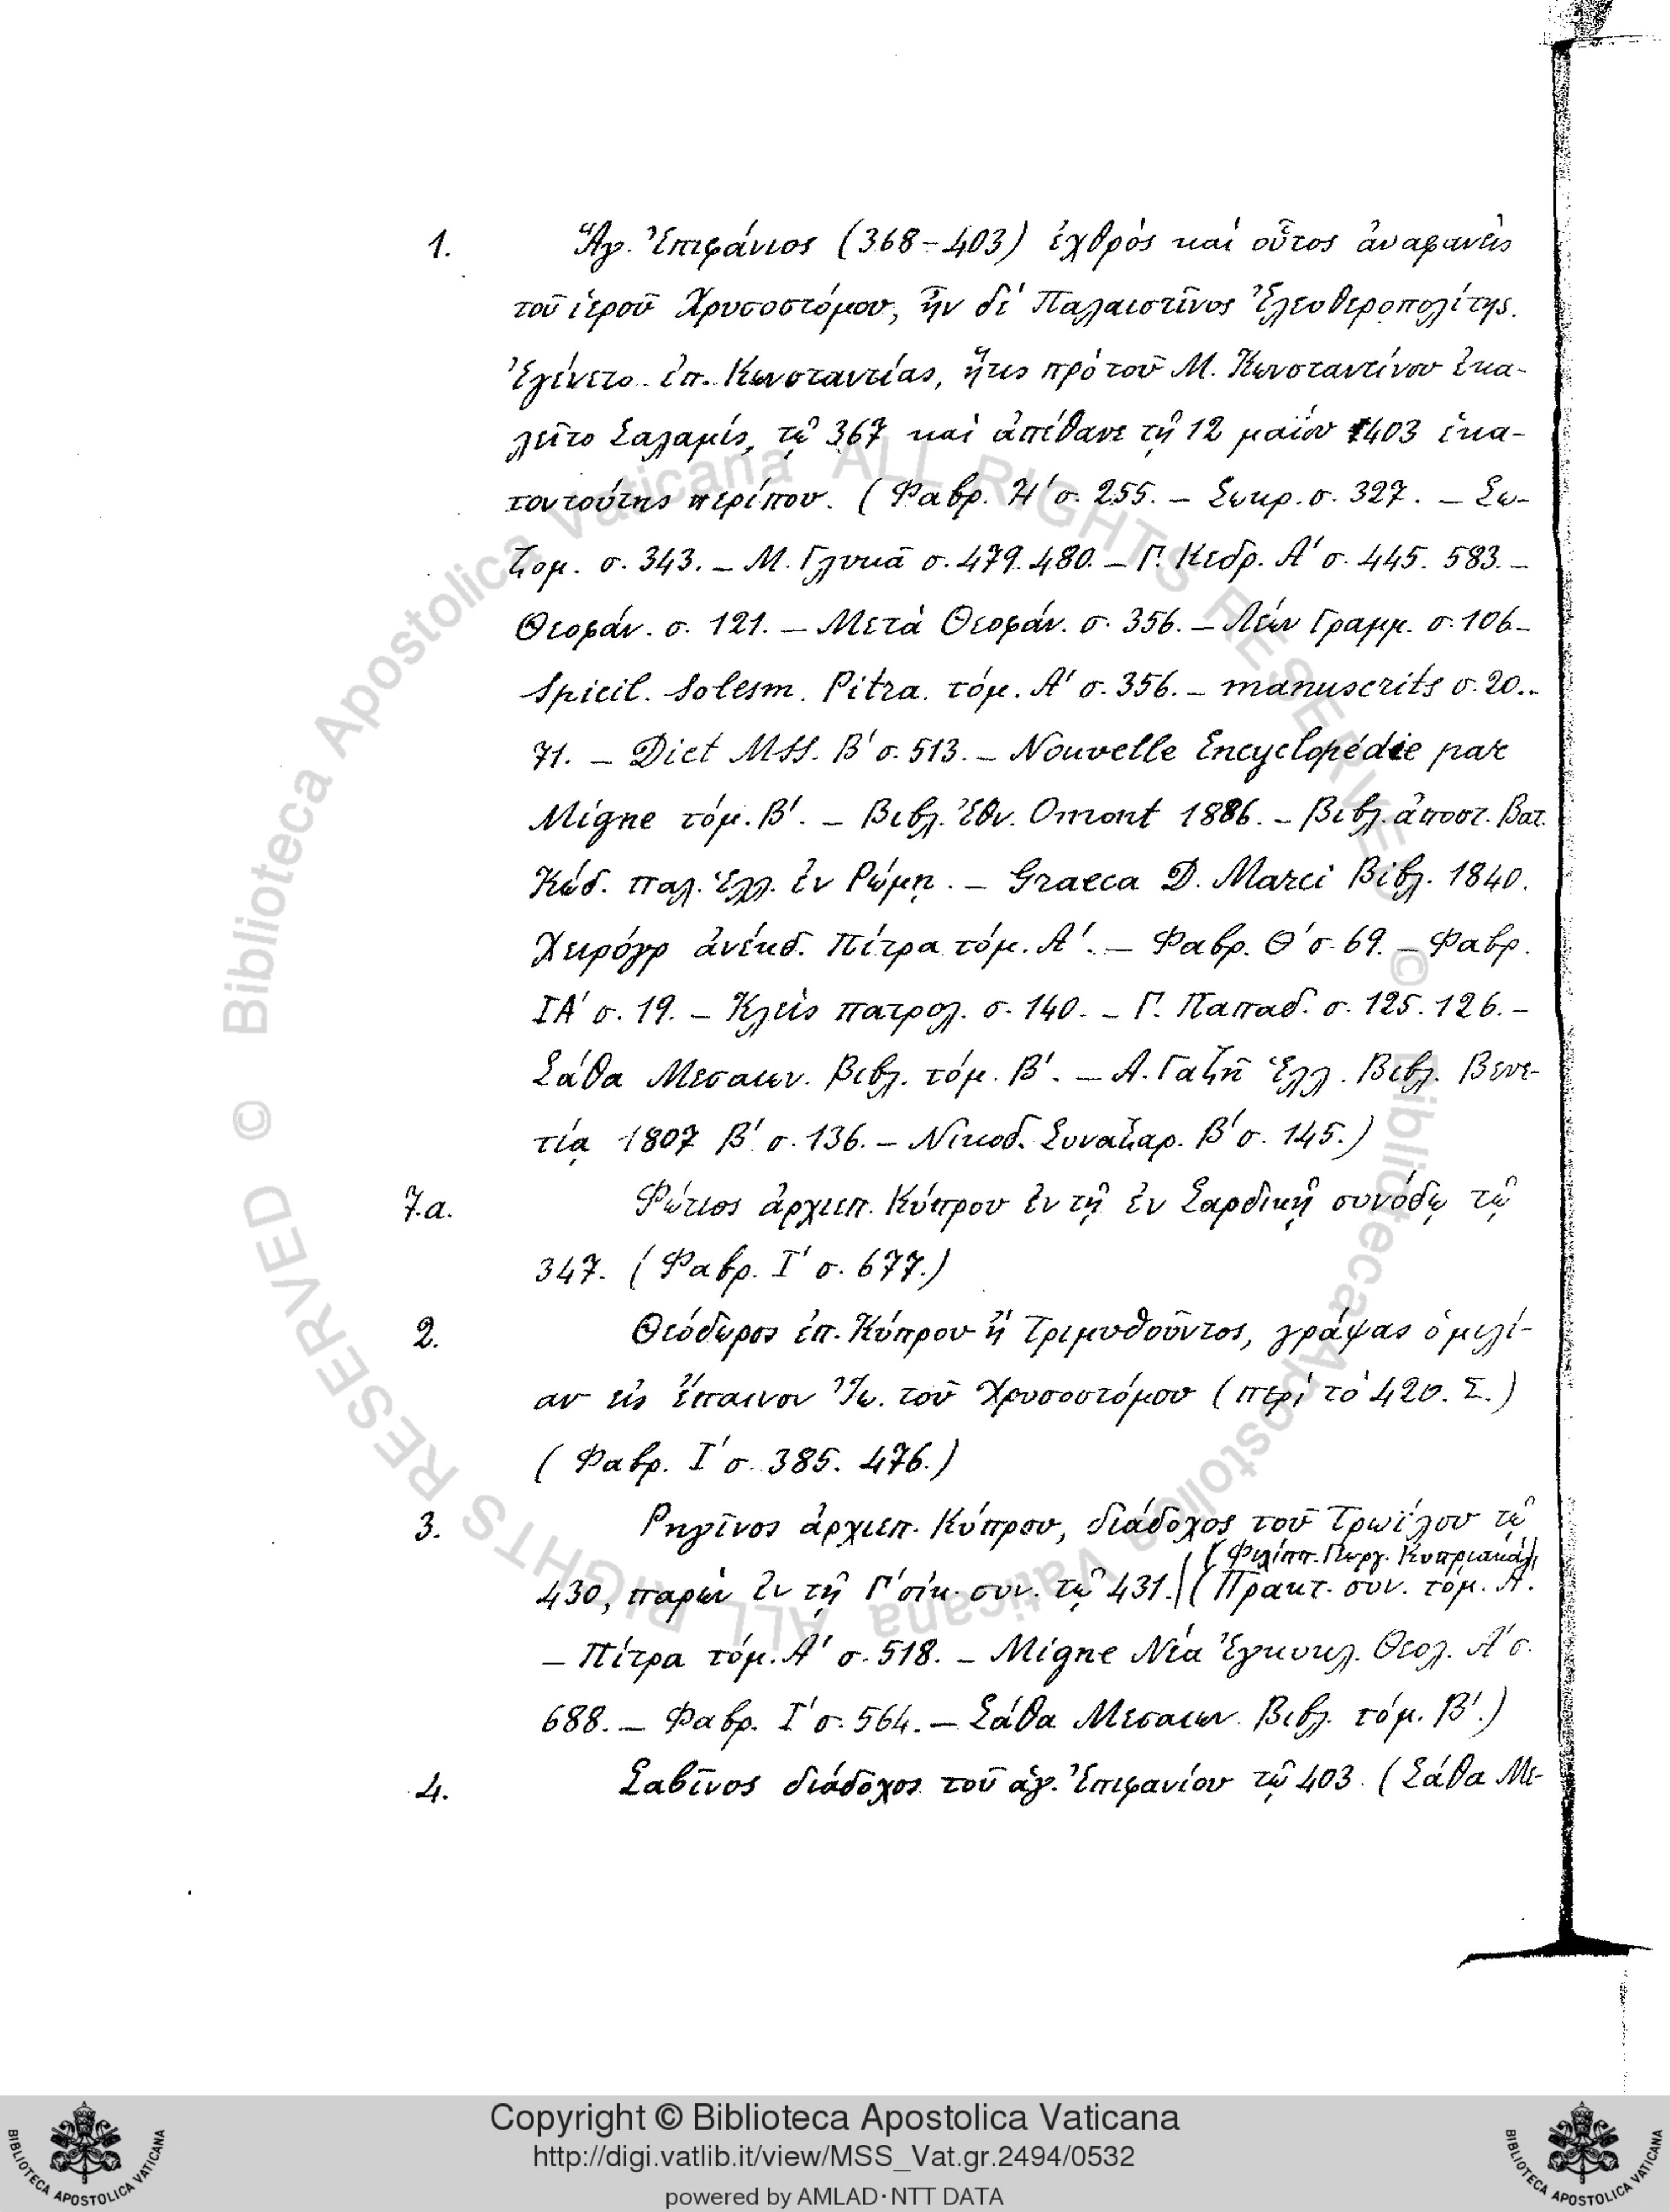 1. Ἅγ. Ἐπιφάνιος (368-403) ἐχθρὸς καὶ οὗτος ἀναφανεὶς
τοῦ ἱεροῦ Χρυσοστόμου, ἦν δὲ Παλαιστῖνος Ἐλευθεροπολίτης.
Ἐγένετο ἐπ. Κωνσταντίας, ἥτις πρὸ τοῦ Μ. Κωνσταντίνου ἐκα-
λεῖτο Σαλαμίς, τῷ 367 καὶ ἀπέθανε τῇ 12 μαΐου 403 ἑκα-
τοντούτης περίπου. (Φαβρ. Η΄ σ. 255. – Σωκρ. σ. 327. – Σω-
ζομ. σ. 343. – Μ. Γλυκᾶ σ. 479. 480. – Γ. Κεδρ. Α΄ σ. 445. 583. –
Θεοφάν. σ. 121. – Μετὰ Θεοφάν. σ. 356. – Λέων Γραμμ. σ. 106 –
Spicil. Solesm. Pitra. τόμ. Α΄ σ. 356. – manuscrits σ. 20..
71. – Dict MSS. Β΄ σ. 513. – Nouvelle Encyclopédie par
Migne τόμ. Β΄. – Βιβλ. Ἐθν. Omont 1886. – Βιβλ. ἀποστ. Βατ.
Κώδ. παλ. Ἑλλ. ἐν Ρώμῃ. – Graeca D. Marci Βιβλ. 1840.
Χειρόγρ ἀνέκδ. Πίτρα τόμ. Α΄. – Φαβρ. Θ΄ σ. 69. – Φαβρ.
ΙΑ΄ σ. 19. – Κλεὶς πατρολ. σ. 140. – Γ. Παπαδ. σ. 125. 126. –
Σάθα Μεσαιων. Βιβλ. τόμ. Β΄. – Α. Γαζῆ Ἑλλ. Βιβλ. Βενε-
τίᾳ 1807 Β΄ σ. 136. – Νικοδ. Συναξαρ. Β΄ σ. 145.)
7.α. Φώτιος ἀρχιεπ. Κύπρου ἐν τῇ ἐν Σαρδικῇ συνόδῳ τῷ
347. (Φαβρ. Ι΄ σ. 677.)
2. Θεόδωρος ἐπ. Κύπρου ἢ Τριμυθοῦντος, γράψας ὁμιλί-
αν εἰς ἔπαινον Ἰω. τοῦ Χρυσοστόμου (περὶ τὸ 420. Σ.)
(Φαβρ. Ι΄ σ. 385. 476.)
3. Ρηγῖνος ἀρχιεπ. Κύπρου, διάδοχος τοῦ Τρωΐλου τῷ
(Φιλίππ. Γεωργ. Κυπριακά)
430, παρὼν ἐν τῇ Γ΄ οἰκ. συν. τῷ 431. (Πρακτ. συν. τόμ. Α΄.
– Πίτρα τόμ. Α΄ σ. 518. – Migne Νέα Ἐγκυκλ. Θεολ. Α΄ σ.
688. – Φαβρ. Ι΄ σ. 564. – Σάθα Μεσαιων. Βιβλ. τόμ. Β΄.)
4. Σαβῖνος διάδοχος τοῦ ἁγ. Ἐπιφανίου τῷ 403. (Σάθα Με-
© Biblioteca Apostolica Vaticana ALL RIGHTS RESERVED
© Biblioteca Apostolica Vaticana ALL RIGHTS RESERVED
Copyright © Biblioteca Apostolica Vaticana
http://digi.vatlib.it/view/MSS_Vat.gr.2494/0532
powered by AMLAD·NTT DATA
BIBLIOTECA APOSTOLICA VATICANA
BIBLIOTECA APOSTOLICA VATICANA